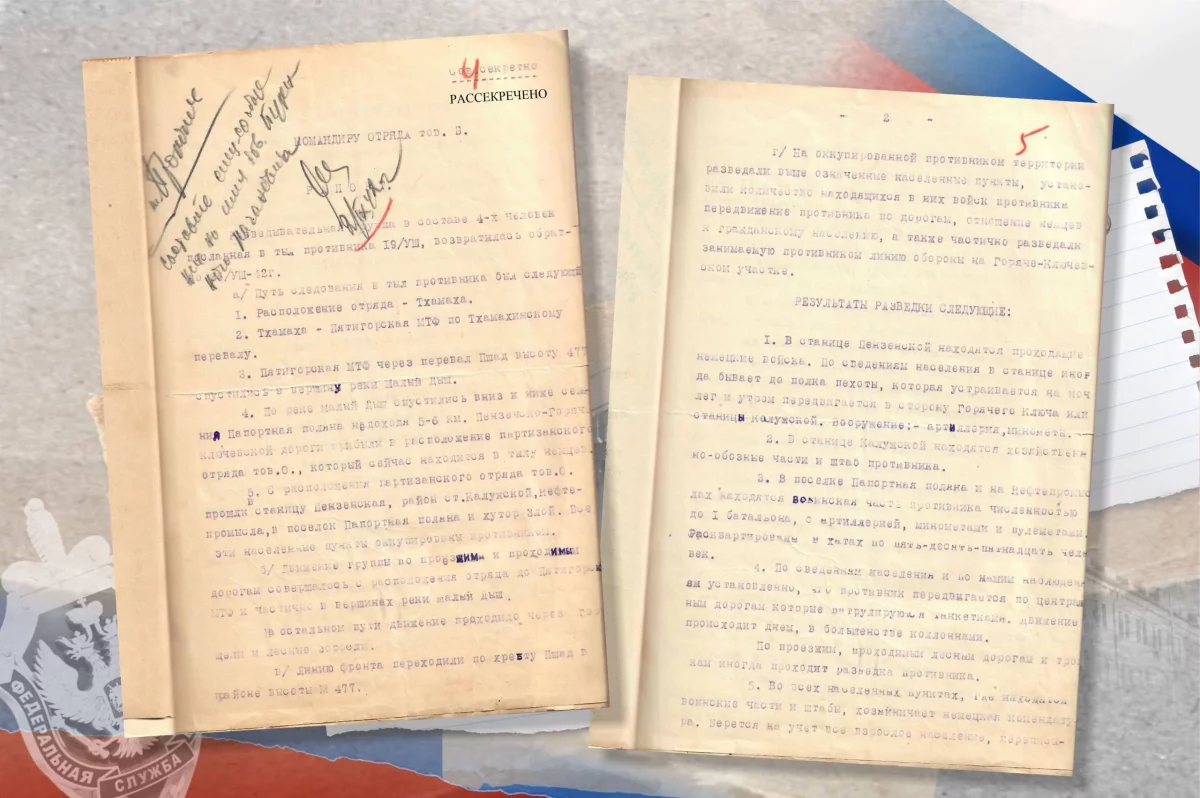 Сов.секретно
4
РАССЕКРЕЧЕНО
КОМАНДИРУ ОТРЯДА тов. Б.
группа в составе 4-х человек
посланная в тыл противника 19/УШ, возвратилась обрат-
/УШ-42г.
а/ Путь следования в тыл противника был следующи
1. Расположение отряда - Тхамаха.
2. Тхамаха - Пятигорская МТФ по Тхамахинскому
перевалу.
3. Пятигорская МТФ через перевал Пшад высоту 477
спустились в вершину реки малый Дыш.
4. По реке малый Дыш спустились вниз и ниже селе-
ния Папортная поляна недоходя 5-6 км. Пензенско-Горяче-
ключевской дороги прибыли в расположение партизанского
отряда тов.О., который сейчас находится в тылу немцев.
5. С расположения партизанского отряда тов.О.
прошли станицу Пензенская, район ст.Калужской,нефте-
промысла,в поселок Папортная поляна и хутор Злой. Все
эти населенные пункты оккупированы противником.
б/ Движение группы по проезщим и проходимым
дорогам совершалось с расположения отряда до Пятигорск
МТФ и частично в вершинах реки малый Дыш.
На остальном пути движение проходило через
щели и лесные заросли.
в/ Линию фронта переходили по хребту Пшад в
районе высоты № 477.
- 2 -
5
г/ На оккупированной противником территории
разведали выше означенные населенные пункты, устано-
вили количество находящихся в них войск противника
передвижение противника по дорогам, отношение немцев
к гражданскому населению, а также частично разведали
занимаемую противником линию обороны на Горяче-Ключев-
ском участке.
РЕЗУЛЬТАТЫ РАЗВЕДКИ СЛЕДУЮЩИЕ:
1. В станице Пензенской находятся проходящие
немецкие войска. По сведениям населения в станице иног
да бывает до полка пехоты, которая устраивается на ноч
лег и утром передвигается в сторону Горячего Ключа или
станицы Калужской. Вооружение:- артиллерия,минометы.
2. В станице Калужской находятся хозяйственн
но-обозные части и штаб противника.
3. В поселке Папортная поляна и на Нефтепромыс
лах находятся воинская часть противника численностью
до 1 батальона, с артиллерией, минометами и пулеметами.
Расквартированы в хатах по пять-десять-пятнадцать чело
век.
4. По сведениям населения и по нашим наблюден-
ям установленно, что противник передвигается по централ
ным дорогам которые патрулируются танкетками. Движение
происходит днем, в большенстве коллоннами.
По проезжим, проходимым лесным дорогам и троп
кам иногда проходит разведка противника.
5. Во всех населенных пунктах, где находятся
воинские части и штабы, хозяйничает немецкая комендату
ра. Берется на учет все взрослое население,
ФЕДЕРАЛЬНАЯ СЛУЖБА